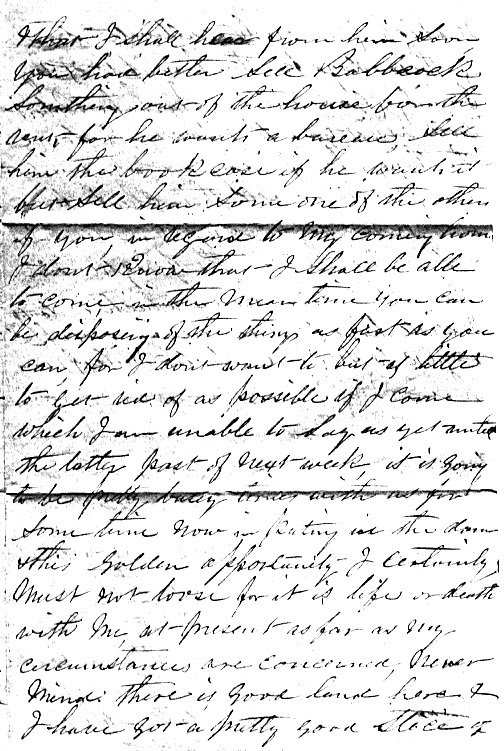 that I shall hear from him soon
You had better Sell Babbcock
Somthing out of the house for the
rent, for he wants a bureau, Sell
him the book case if he wants it
but Sell him Some one of the others
if you, in regard to My coming home
I dont Know that I Shall be able
to come, in the Mean time you can
be disposing of the things as fast as you
can, for I dont want to but as little
to get rid of as possible if I come
which I am unable to Say as yet untill
the latter part of next week, it is going
to be pretty busy times with us for
Some time now in puting in the dam
& this Golden opportunity I Certainly
Must not loose for it is life or death
with Me, at present as far as My
circumstances are concerned, Never
Mind there is good land here &
I have got a pretty good Slice of